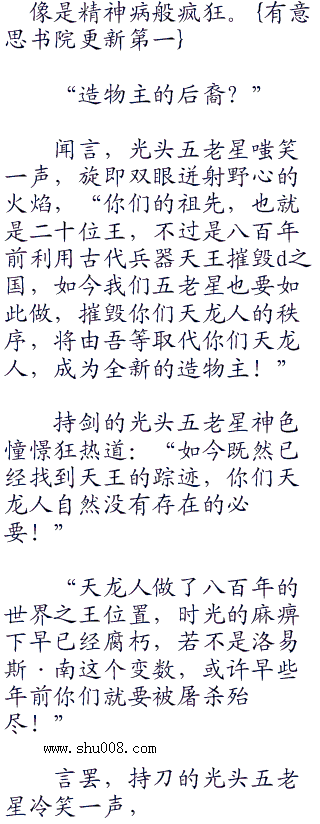 像是精神病般疯狂。{有意
思书院更新第一}
“造物主的后裔？”
闻言，光头五老星嗤笑
一声，旋即双眼迸射野心的
火焰，“你们的祖先，也就
是二十位王，不过是八百年
前利用古代兵器天王摧毁d之
国，如今我们五老星也要如
此做，摧毁你们天龙人的秩
序，将由吾等取代你们天龙
人，成为全新的造物主！”
持剑的光头五老星神色
憧憬狂热道：“如今既然已
经找到天王的踪迹，你们天
龙人自然没有存在的必
要！”
“天龙人做了八百年的
世界之王位置，时光的麻痹
下早已经腐朽，若不是洛易
斯·南这个变数，或许早些
年前你们就要被屠杀殆
尽！”
www.shu008.com
言罢，持刀的光头五老
星冷笑一声，